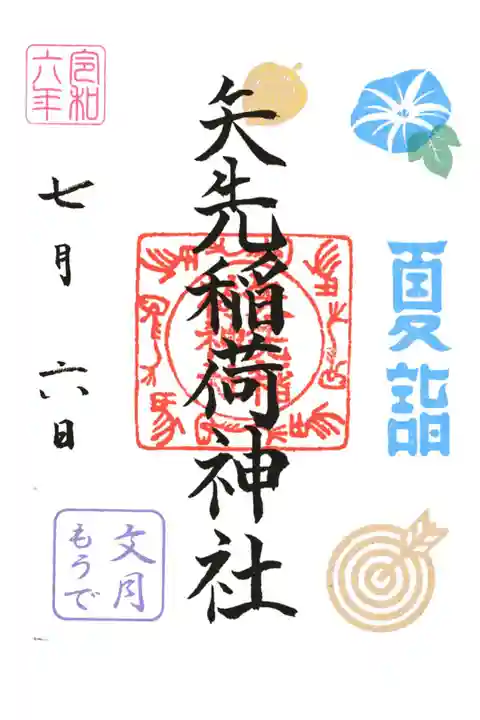 夏詣
矢先稲荷神社
令和
六年
七月 六日
文月
もうで